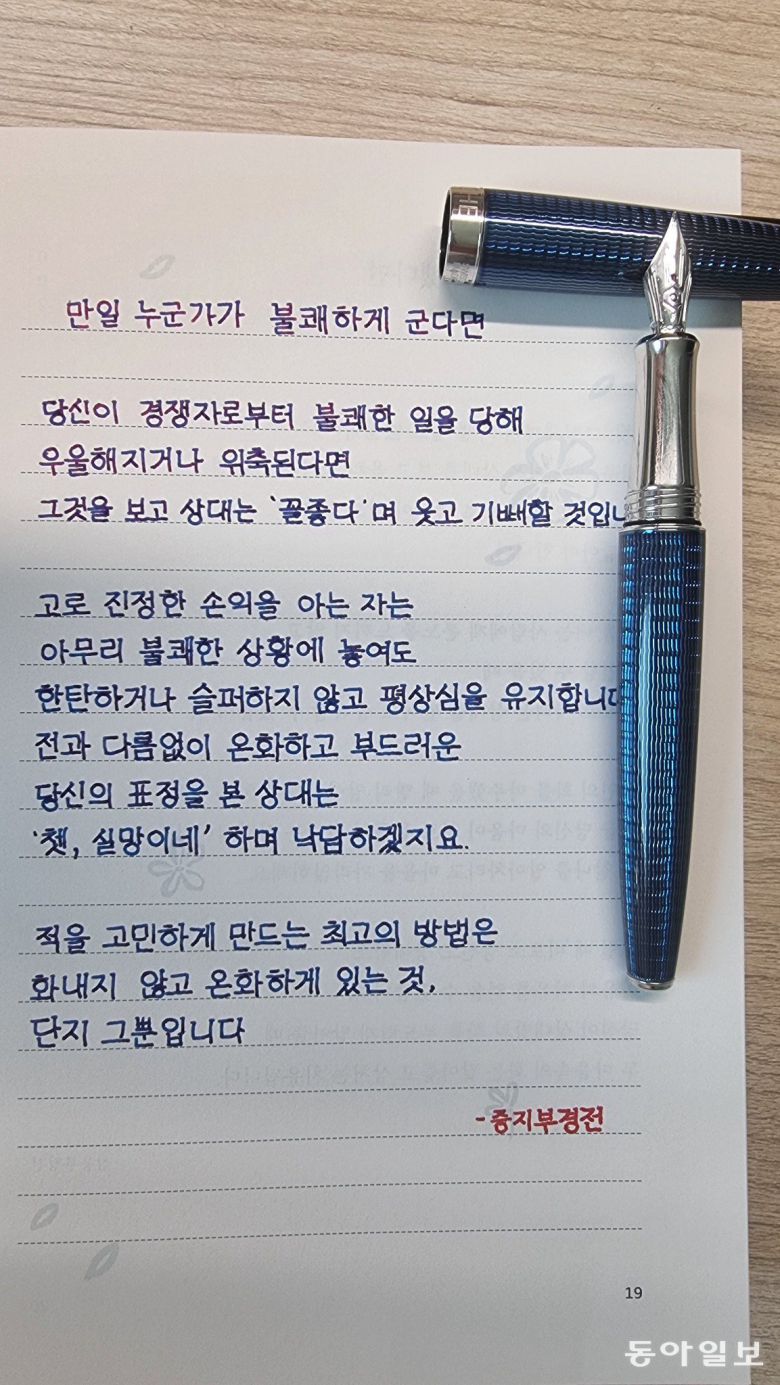 만일 누군가가 불쾌하게 군다면
당신이 경쟁자로부터 불쾌한 일을 당해
우울해지거나 위축된다면
그것을 보고 상대는 '꼴좋다'며 웃고 기뻐할 것입니
고로 진정한 손익을 아는 자는
아무리 불쾌한 상황에 놓여도
한탄하거나 슬퍼하지 않고 평상심을 유지합니다
전과 다름없이 온화하고 부드러운
당신의 표정을 본 상대는
'쳇, 실망이네' 하며 낙담하겠지요.
적을 고민하게 만드는 최고의 방법은
화내지 않고 온화하게 있는 것,
단지 그뿐입니다
- 증지부경전
19
동아일보